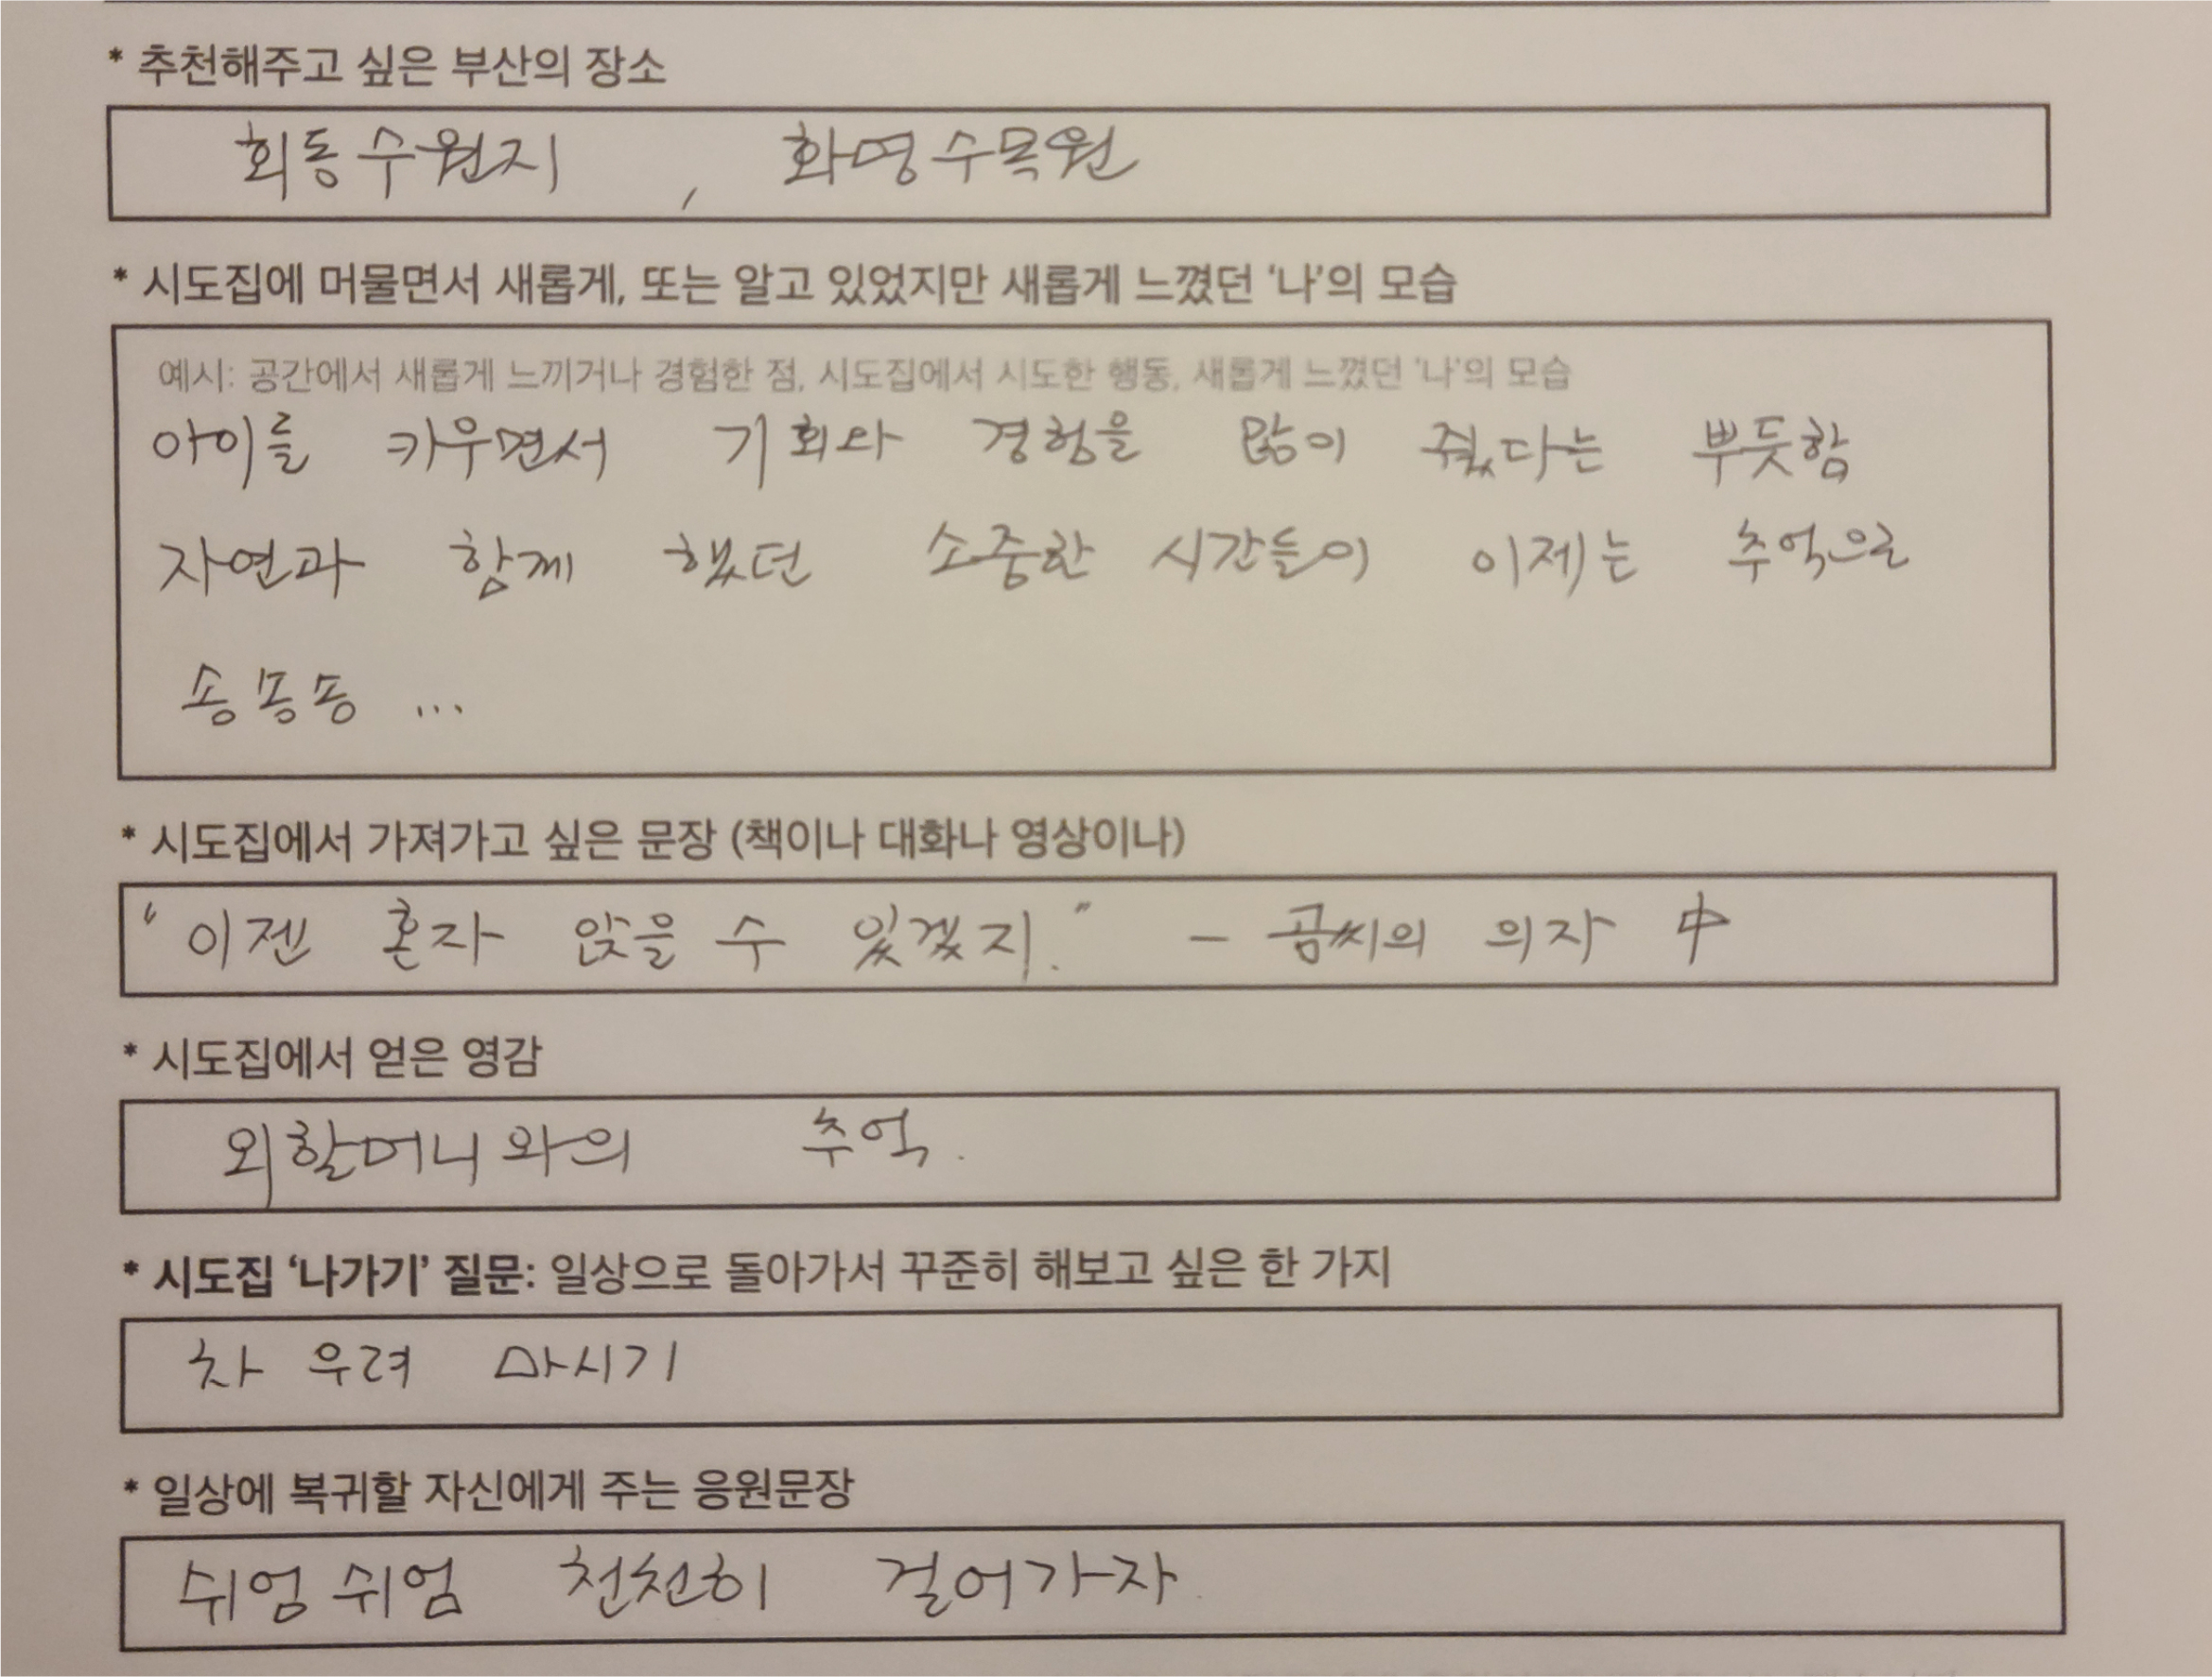 * 추천해주고 싶은 부산의 장소
회동수원지, 화명수목원
* 시도집에 머물면서 새롭게, 또는 알고 있었지만 새롭게 느꼈던 ‘나’의 모습
예시: 공간에서 새롭게 느끼거나 경험한 점, 시도집에서 시도한 행동, 새롭게 느꼈던 '나'의 모습
아이를 키우면서 기회와 경험을 많이 줬다는 뿌듯함
자연과 함께 했던 소중한 시간들이 이제는 추억으로
송송송 ...
* 시도집에서 가져가고 싶은 문장 (책이나 대화나 영상이나)
“이젠 혼자 앉을 수 있겠지.” - 곰씨의 의자 中
* 시도집에서 얻은 영감
외할머니와의 추억.
* 시도집 ‘나가기’ 질문: 일상으로 돌아가서 꾸준히 해보고 싶은 한 가지
차 우려 마시기
* 일상에 복귀할 자신에게 주는 응원문장
쉬엄쉬엄 천천히 걸어가자.